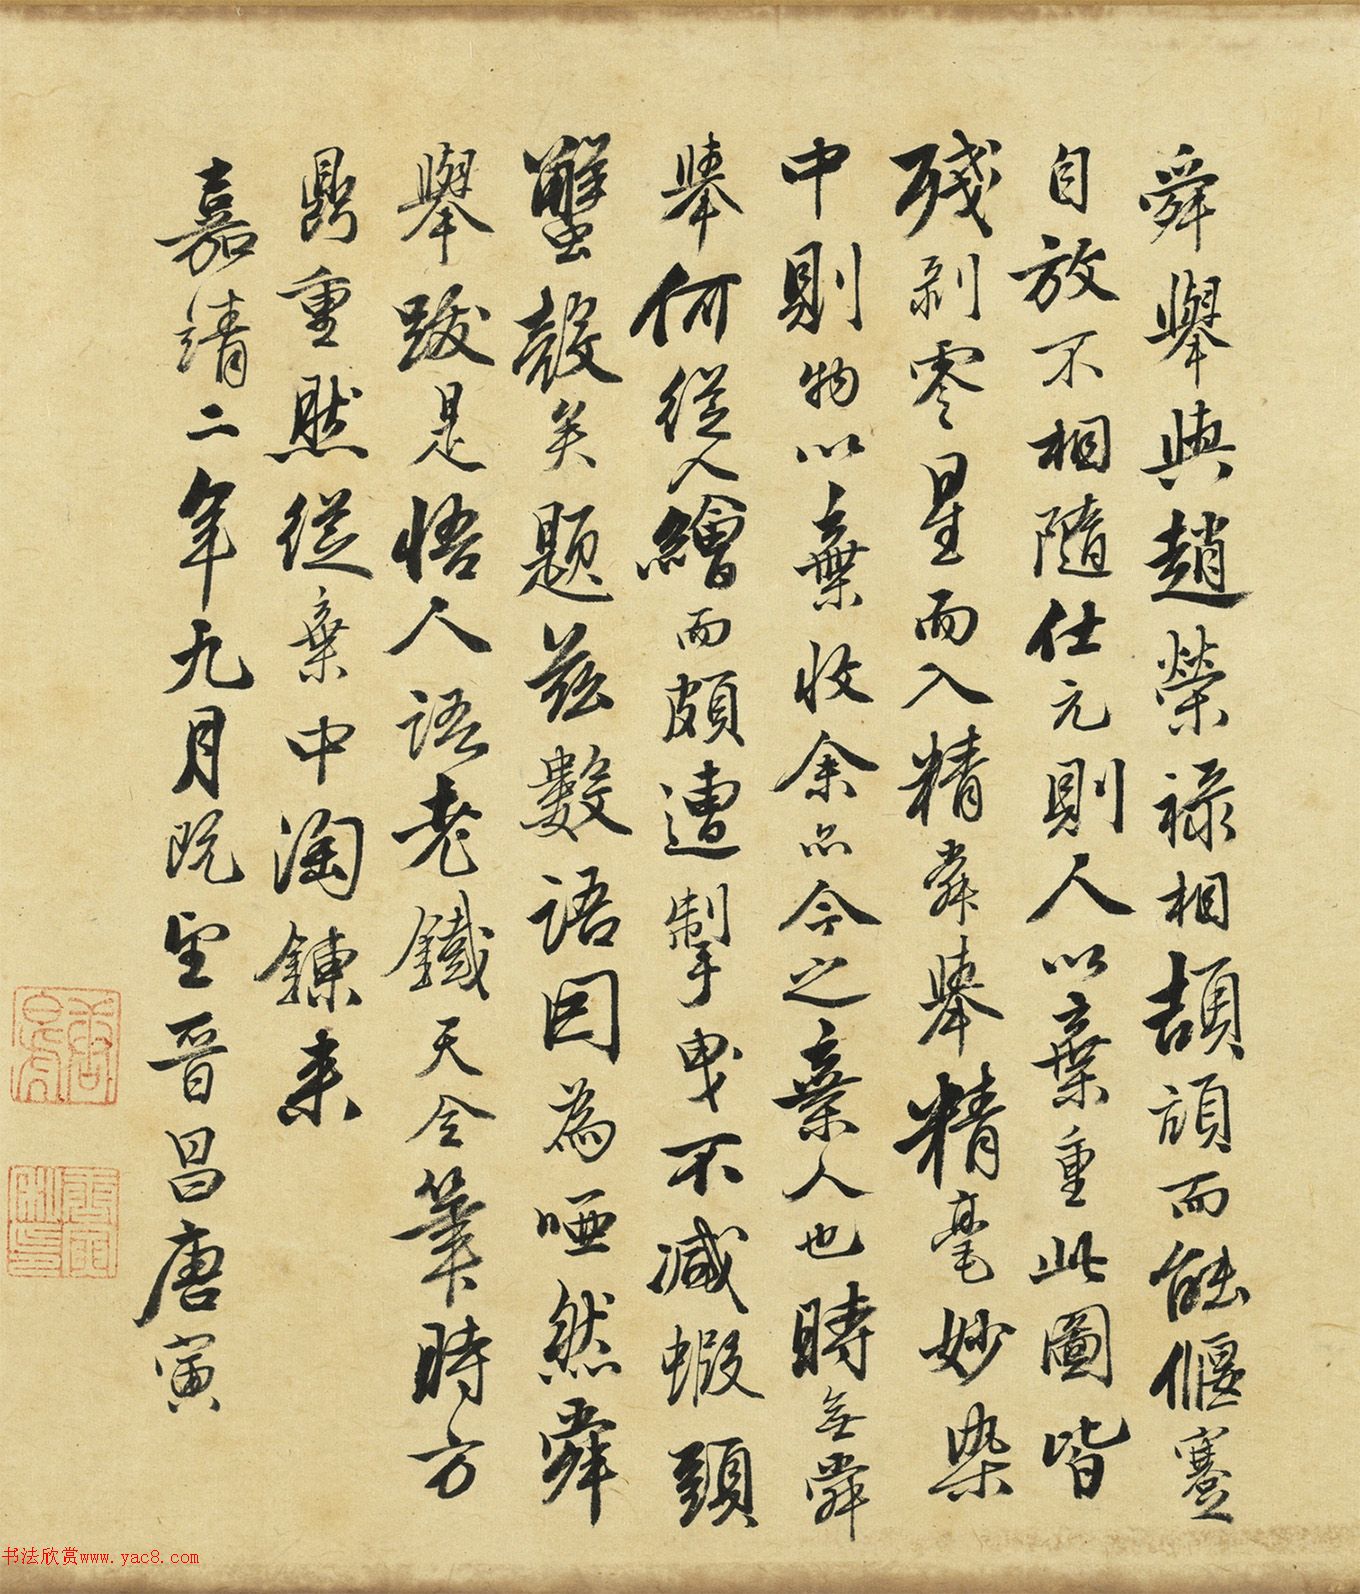 舜舉與趙榮祿相頡頏而能偃蹇
自放不相隨仕元則人以棄重此圖皆
殘剥零星而入精舜舉精毫妙染
中則物以棄收余亦今之棄人也時無舜
舉何從人繪而頗遭掣曳不減蝦頭
蟹殼矣題茲數語因為啞然舜
舉跋是悟人語老鐵天全筆時方
鼎重然從棄中淘鍊来
嘉靖二年九月既望晋昌唐寅
书法欣赏www.yac8.com